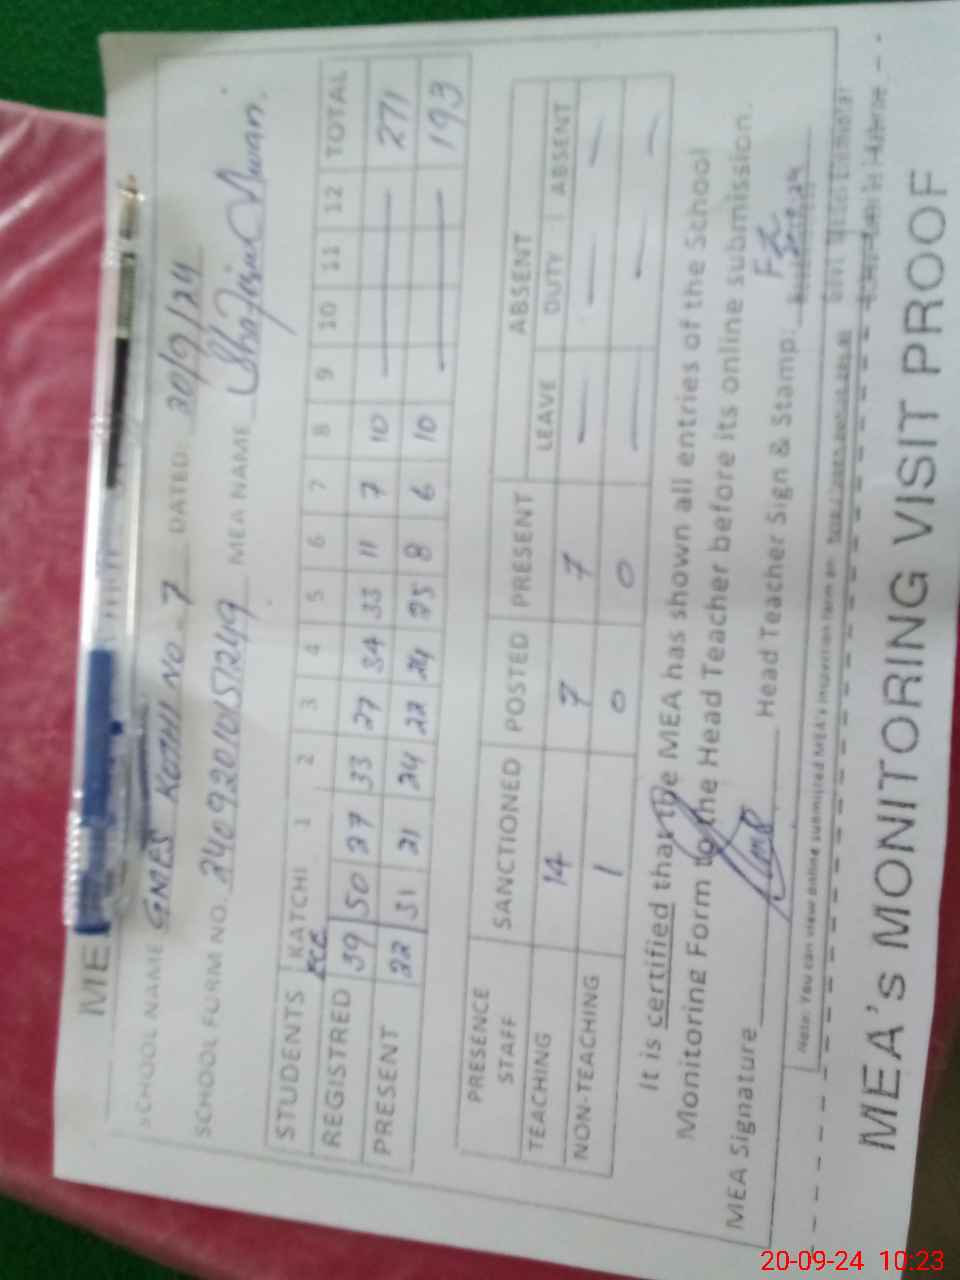 ME
SCHOOL NAME GMES KOTHI NO. 7 DATED: 20/9/24
SCHOOL FURM NO. 24092010151249 MEA NAME
STUDENTS KATCHI 1 2 3 4 5 6 7 8 9 10 11 12 TOTAL
ECE
REGISTRED 39 50 27 33 27 34 33 11 7 10 — 271
PRESENT 22 31 21 24 22 24 25 8 6 10 — 193
PRESENCE ABSENT
STAFF SANCTIONED POSTED PRESENT LEAVE DUTY ABSENT
TEACHING 14 7 7 — — —
NON-TEACHING 1 0 0 — — —
It is certified that the MEA has shown all entries of the School
Monitoring Form to the Head Teacher before its online submission.
MEA Signature Head Teacher Sign & Stamp:
Note: You can view online submitted MEA's inspection form on
MEA's MONITORING VISIT PROOF
20-09-24 10:23